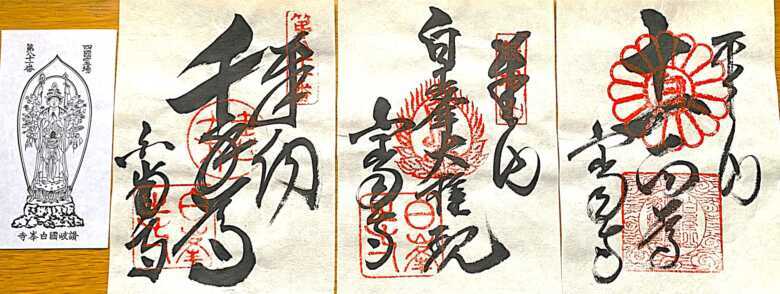 四國霊場
第八十一番
讃岐國白峯寺
奉納
千手尊
白峯寺
奉納
白峯大権現
白峯寺
奉納
十一面尊
白峯寺